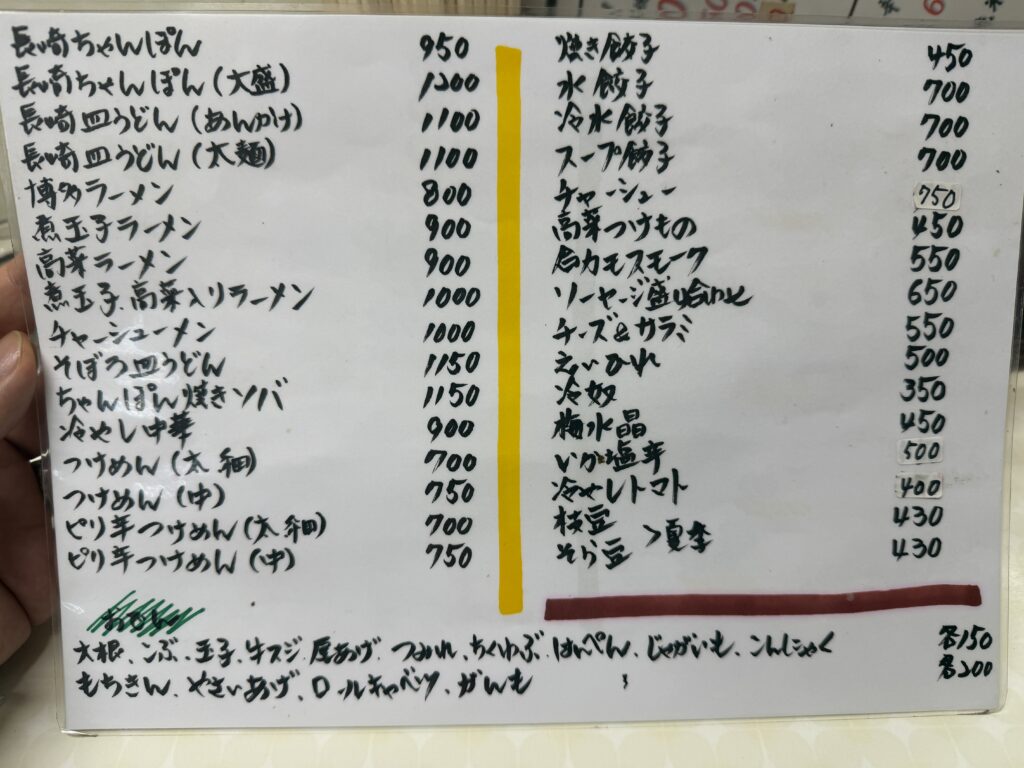 長崎ちゃんぽん 950
長崎ちゃんぽん(大盛) 1200
長崎皿うどん(あんかけ) 1100
長崎皿うどん(太麺) 1100
博多ラーメン 800
煮玉子ラーメン 900
高菜ラーメン 900
煮玉子.高菜入りラーメン 1000
チャーシューメン 1000
そぼろ皿うどん 1150
ちゃんぽん焼きソバ 1150
冷やし中華 900
つけめん(太 細) 700
つけめん(中) 750
ピリ辛つけめん(太 細) 700
ピリ辛つけめん(中) 750
焼き餃子 450
水餃子 700
冷水餃子 700
スープ餃子 700
チャーシュー 750
高菜つけもの 450
合カモスモーク 550
ソーセージ盛り合わせ 650
チーズ&カラミ 550
えいひれ 500
冷奴 350
梅水晶 450
いか塩辛 500
冷やしトマト 400
枝豆 430
>夏季
そら豆 430
大根、こぶ、玉子、牛スジ、厚あげ、つみれ、ちくわぶ、はんぺん、じゃがいも、こんにゃく 各150
もちきん、やさいあげ、ロールキャベツ、がんも 各200